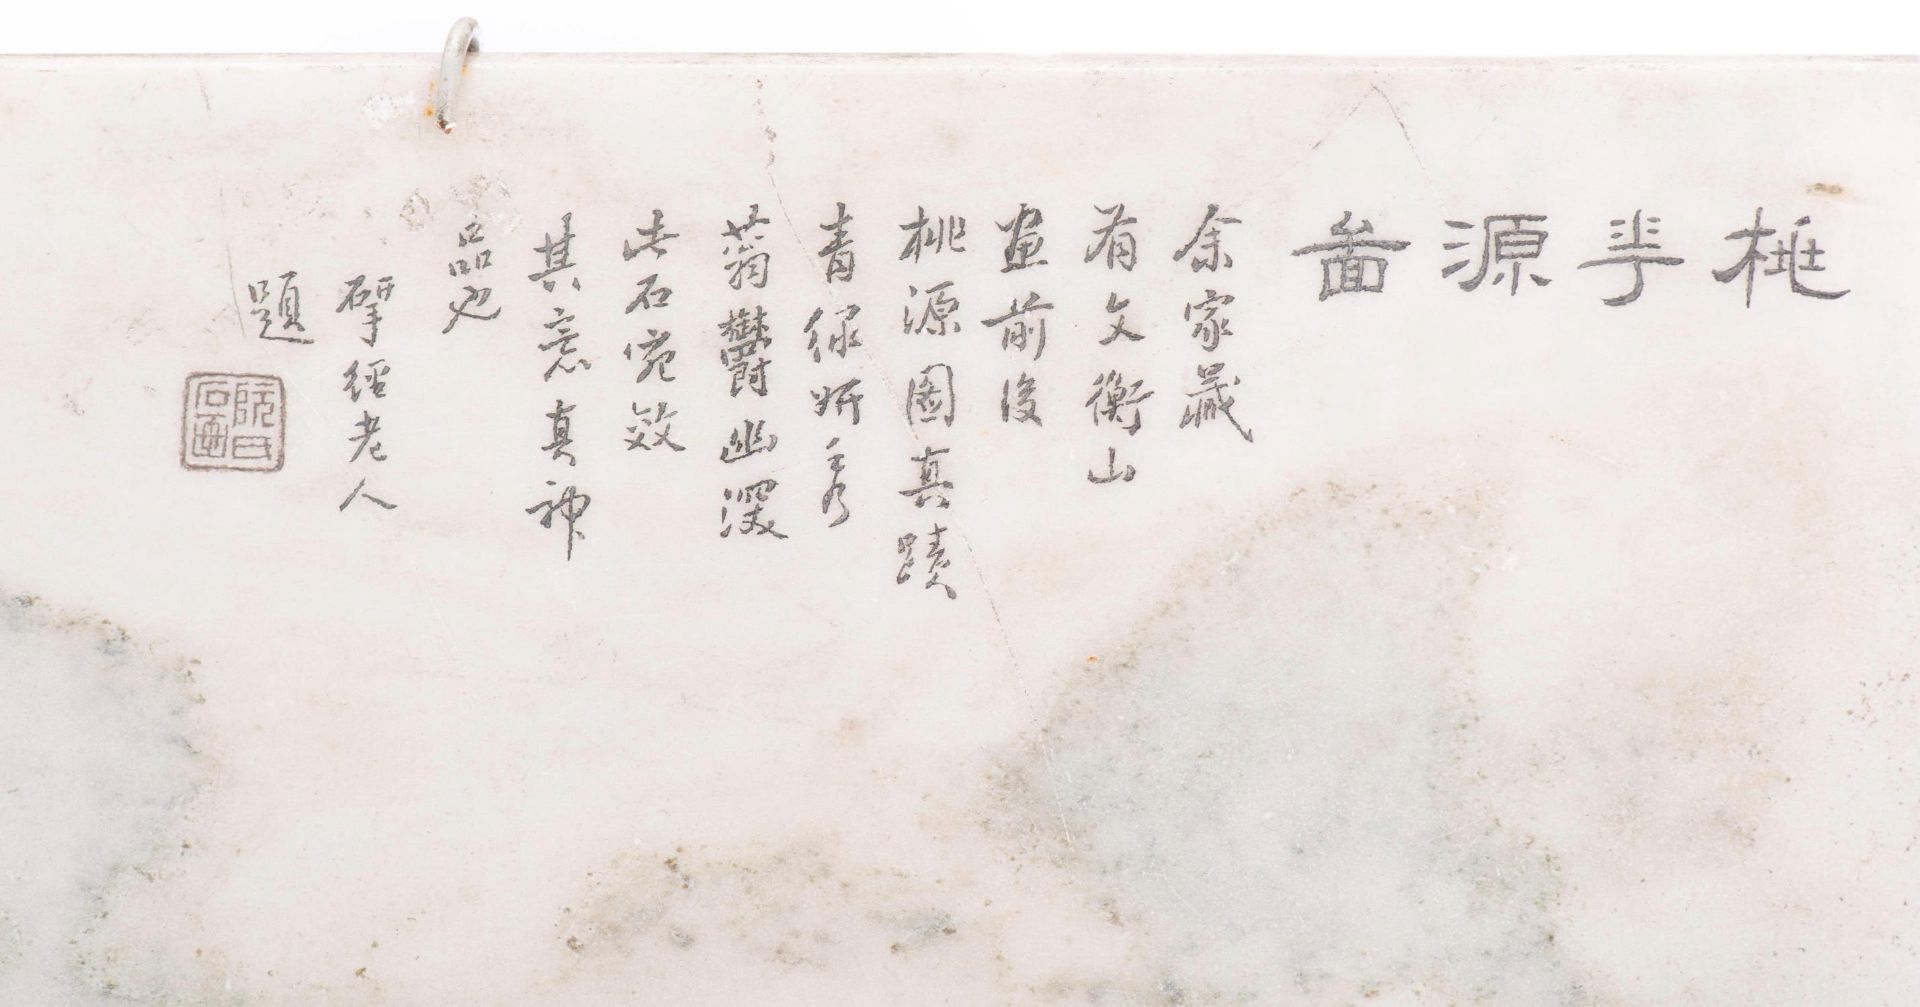 桃華源啚
余家藏
有文衡山
畫前後
桃源圖真蹟
青綠妍秀
蓊鬱幽深
此石宛效
其意真神
品也
揅經老人
題
阮氏
石畫